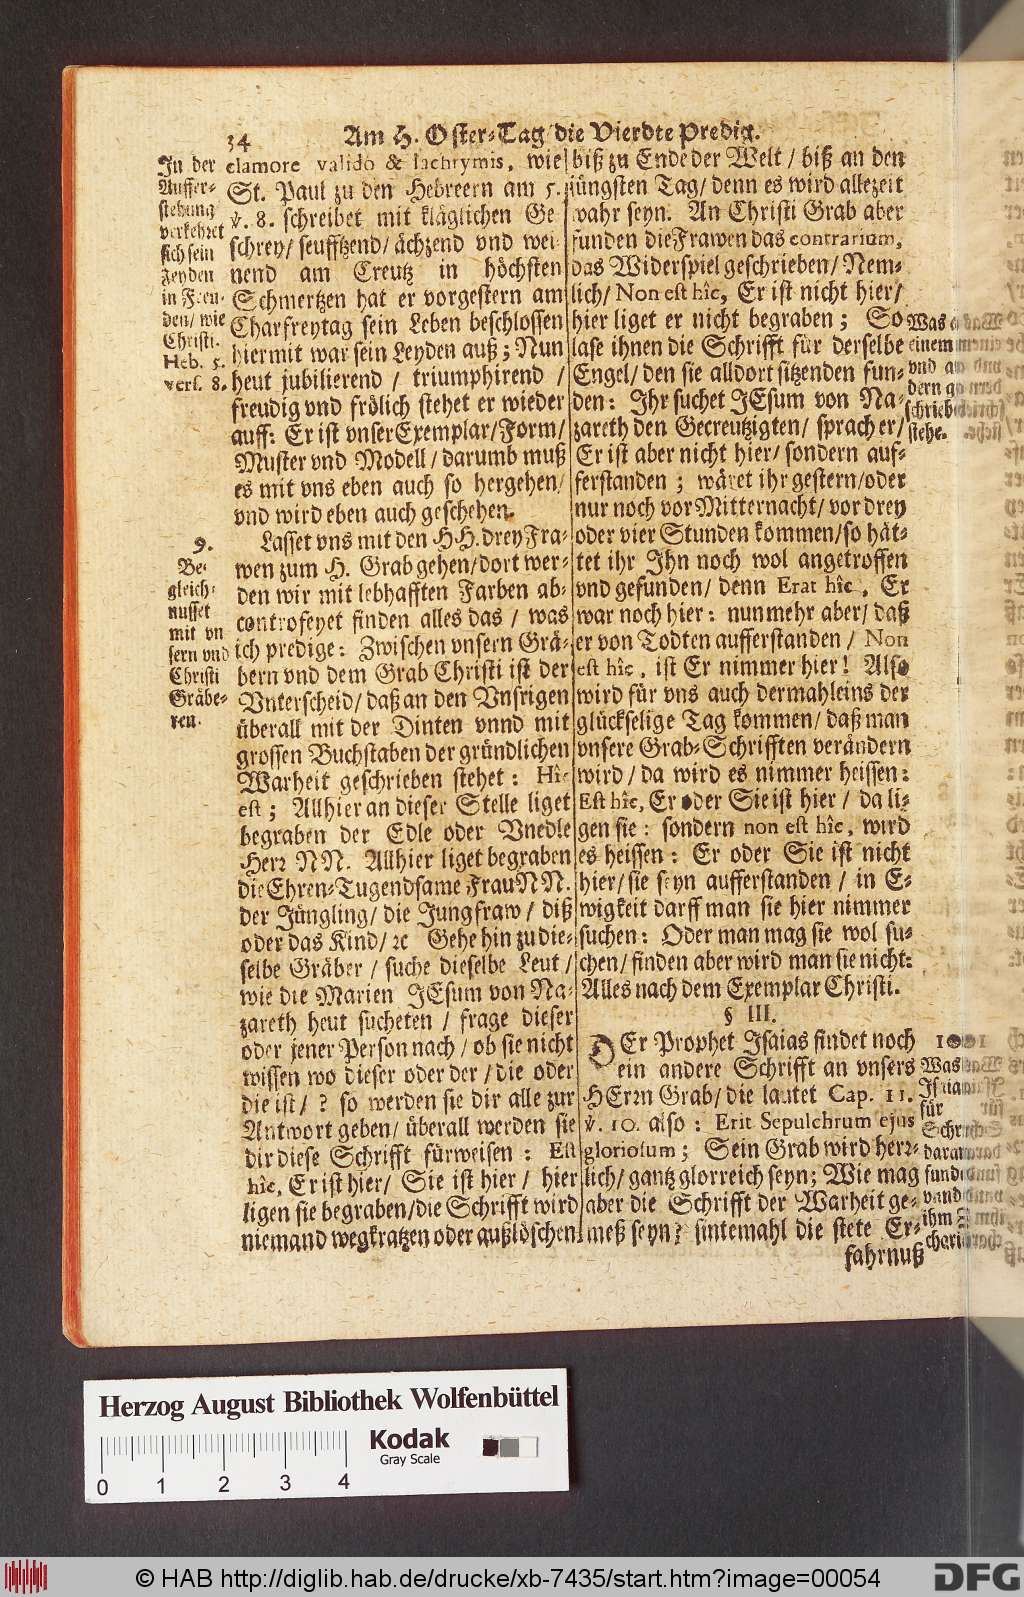 34 Am H. Oster-Tag/die Vierdte Predig.
In der
Auffer-
stehung
verkehret
sich sein
Leyden
in Freu-
den/ wie
Christi.
Heb. 5.
vers. 8.
clamore valido & lachrymis, wie
St. Paul zu den Hebreern am 5.
v. 8. schreibet mit kläglichen Ge
schrey/ seufftzend/ ächzend vnd wei-
nend am Creutz in höchsten
Schmertzen hat er vorgestern am
Charfreytag sein Leben beschlossen
hiermit war sein Leyden auß; Nun
heut jubilierend / triumphirend /
freudig vnd frölich stehet er wieder
auff: Er ist vnser Exemplar/Form/
Muster vnd Modell/darumb muß
es mit vns eben auch so hergehen/
vnd wird eben auch geschehen.
9.
Be-
gleich-
nusset
mit vn
sern vnd
Christi
Gräbe-
ren.
Lasset vns mit den HH. drey Fra-
wen zum H. Grab gehen/dort wer-
den wir mit lebhafften Farben ab-
controfeyet finden alles das / was
ich predige: Zwischen vnsern Grä-
bern vnd dem Grab Christi ist der
Vnterscheid/ daß an den Vnsrigen
überall mit der Dinten vnnd mit
grossen Buchstaben der gründlichen
Warheit geschrieben stehet: Hîc
est; Allhier an dieser Stelle liget
begraben der Edle oder Vnedle
Herr NN. Allhier liget begraben
die Ehren-Tugendsame Frau NN.
der Jüngling/ die Jungfraw/ diß
oder das Kind/ ꝛc Gehe hin zu die-
selbe Gräber / suche dieselbe Leut /
wie die Marien JEsum von Na-
zareth heut sucheten / frage dieser
oder jener Person nach / ob sie nicht
wissen wo dieser oder der / die oder
die ist / ? so werden sie dir alle zur
Antwort geben/ überall werden sie
dir diese Schrifft fürweisen: Est
hîc, Er ist hier/ Sie ist hier / hier
ligen sie begraben/die Schrifft wird
niemand wegkratzen oder außlöschen
biß zu Ende der Welt / biß an den
jüngsten Tag/ denn es wird allezeit
wahr seyn. An Christi Grab aber
funden die Frawen das contrarium,
das Widerspiel geschrieben/ Nem-
lich/ Non est hîc, Er ist nicht hier/
hier liget er nicht begraben; So
lase ihnen die Schrifft für derselbe
Engel/ den sie alldort sitzenden fun-
den: Ihr suchet JEsum von Na-
zareth den Gecreutzigten/ sprach er/
Er ist aber nicht hier/ sondern auf-
ferstanden; wäret ihr gestern/oder
nur noch vor Mitternacht/ vor drey
oder vier Stunden kommen/so hät-
tet ihr Ihn noch wol angetroffen
vnd gefunden/ denn Erat hîc, Er
war noch hier: nunmehr aber/ daß
er von Todten aufferstanden / Non
est hîc, ist Er nimmer hier! Also
wird für vns auch dermahleins der
glückselige Tag kommen/ daß man
vnsere Grab-Schrifften verändern
wird / da wird es nimmer heissen:
Est hîc, Er oder Sie ist hier / da li-
gen sie: sondern non est hîc, wird
es heissen: Er oder Sie ist nicht
hier/ sie seyn aufferstanden / in E-
wigkeit darff man sie hier nimmer
suchen: Oder man mag sie wol su-
chen/ finden aber wird man sie nicht:
Alles nach dem Exemplar Christi.
Was
einem
vnd
dern
schrieb
stehe.
§ III.
DEr Prophet Isaias findet noch
ein andere Schrifft an vnsers
HErrn Grab/ die lautet Cap. 11.
v. 10. also: Erit Sepulchrum ejus
gloriosum; Sein Grab wird herr-
lich/ gantz glorreich seyn; Wie mag
aber die Schrifft der Warheit ge-
meß seyn? sintemahl die stete Er-
fahrnuß
Was
für
Schrifft
daran
ihm
Herzog August Bibliothek Wolfenbüttel
Kodak
Gray Scale
0 1 2 3 4
© HAB http://diglib.hab.de/drucke/xb-7435/start.htm?image=00054
DFG